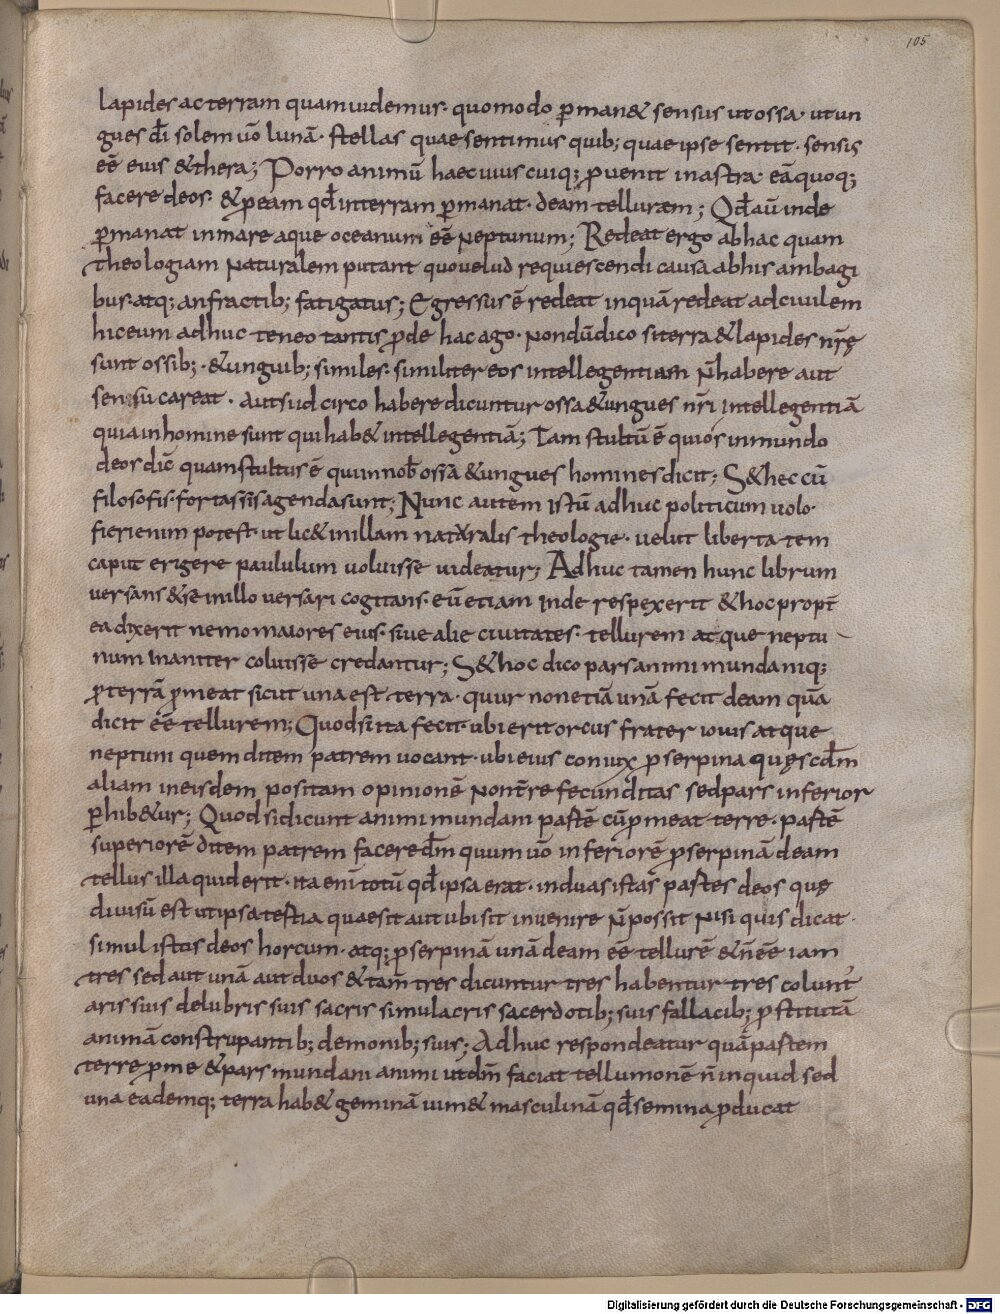 105
lapides ac terram quam uidemus· quomodo ꝑman& sensus ut ossa· ut un
gues d̄i solem ūo lunā· stellas quae sentimus quib; quae ipse sentit· sensis
eē eius &thera; Porro animū haec uius cuiq; ꝓuenit in astra· eāquoq;
facere deos· & ꝑ eam qd̄ in terram ꝑmanat· deam telluram; Qd̄ aū inde
ꝑmanat in mare aque oceanum eē neptunum; Redeat ergo ab hac quam
theologiam naturalem putant quouelud requiescendi causa ab his ambagi
bus· atq; anfractib; fatigatus; Egressus ē redeat inquā redeat ad ciuilem
hic eum adhuc teneo tantis ꝑ de hac ago· nondū dico si terra & lapides nr̄ę
sunt ossib;· & unguib; similes· similiter eos intellegentiam n̄ habere aut
sensu careat· aut sud circo habere dicuntur ossa & ungues nr̄i intellegentiā
quia in homine sunt qui hab& intellegentiā; Tam stultū ē qui os in mundo
deos dic̄ quam stultus ē qui in nob̄ ossa & ungues homines dicit; S& hec cū
filosofis· fortassis agenda sunt; Nunc autem istū adhuc politicum uolo·
fieri enim potest· ut lic& in illam naturalis theologie· uelut liberta tem
caput erigere paululum uoluisse uideatur; Adhuc tamen hunc librum
versans & se in illo versari cogitans· eū etiam inde respexerit & hoc propt̄
ea dixerit nemo maiores eius· siue alie ciuitates· tellurem atque neptu
num inaniter coluisse credantur; S& hoc dico pars animi mundaniq;
ꝑ terrā ꝑmeat sicut una est terra· quur non etiā unā fecit deam quā
dicit eē tellurem; Quod si ita fecit· ubi erit orcus frater iouis atque
neptuni quem ditem patrem uocant· ubi eius coniux ꝓserpina quę scd̄m
aliam in eisdem positam opinionē non tr̄re fecunditas sed pars inferior
ꝑhib&ur; Quod si dicunt animi mundam pastē cū ꝑmeat terre· pastē
superiorē ditem patrem facere dm̄ quum ūo inferiorē ꝓserpinā deam
tellus illa quid erit· ita eni totū qd̄ ipsa erat· in duas istas pastes deos quę
diuisū est ut ipsa testia quae sit aut ubi sit inuenire n̄ possit nisi quis dicat·
simul istos deos horcum· atq; ꝓserpinā unā deam eē tellurē & n̄ eē iam
tres sed aut unā aut duos & tam̄ tres dicuntur tres habentur tres colunt᷑
aris suis delubris suis sacris simulacris sacerdotib; suis fallacib; ꝓstitutā
animā construpantib; demonib; suis; Adhuc respondeatur quā pastem
terre ꝑme & pars mundani animi ut dm̄ faciat tellumonē n̄ inquid sed
una eademq; terra hab& geminā uim & masculinā qd̄ semina ꝓducat
Digitalisierung gefördert durch die Deutsche Forschungsgemeinschaft - DFG